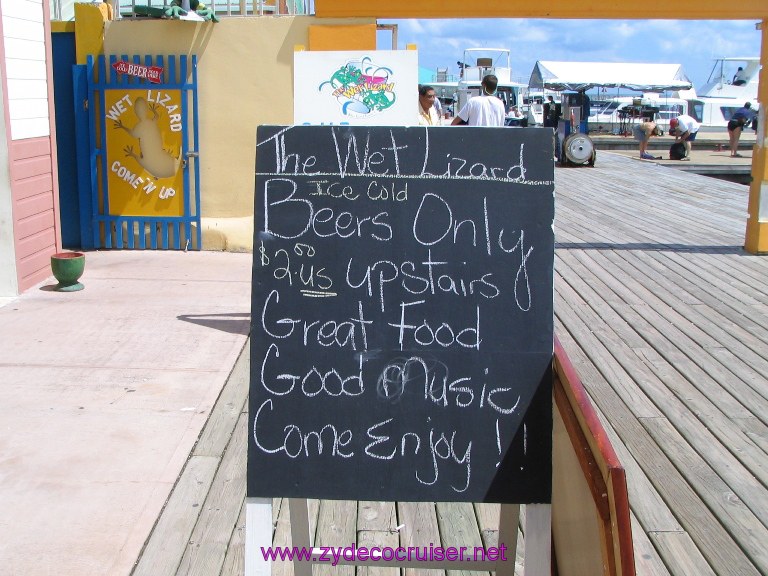 ICE BEER COLD
WET LIZARD
COME 'N UP
The Wet Lizard
Ice Cold
Beers Only
$2.00 us upstairs
Great Food
Good Music
Come Enjoy !!
www.zydecocruiser.net